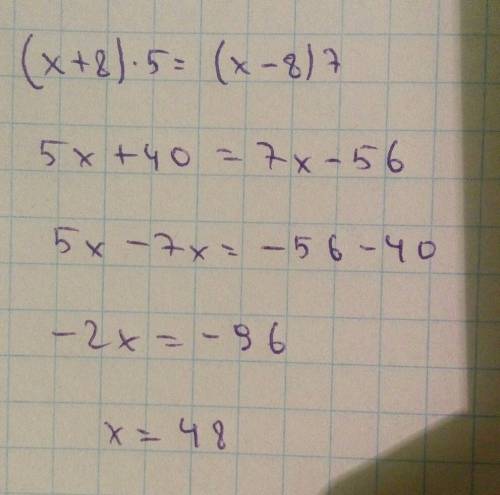 (x+8)·5= (x-8)7
5x+40=7x-56
5x-7x=-56-40
-2x=-96
x=48